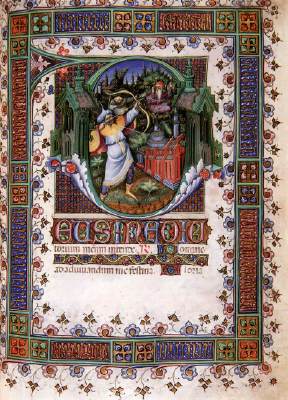 DEUS IN ADIU
torium meum intende R Domine
ad adiuvandum me festina Gloria